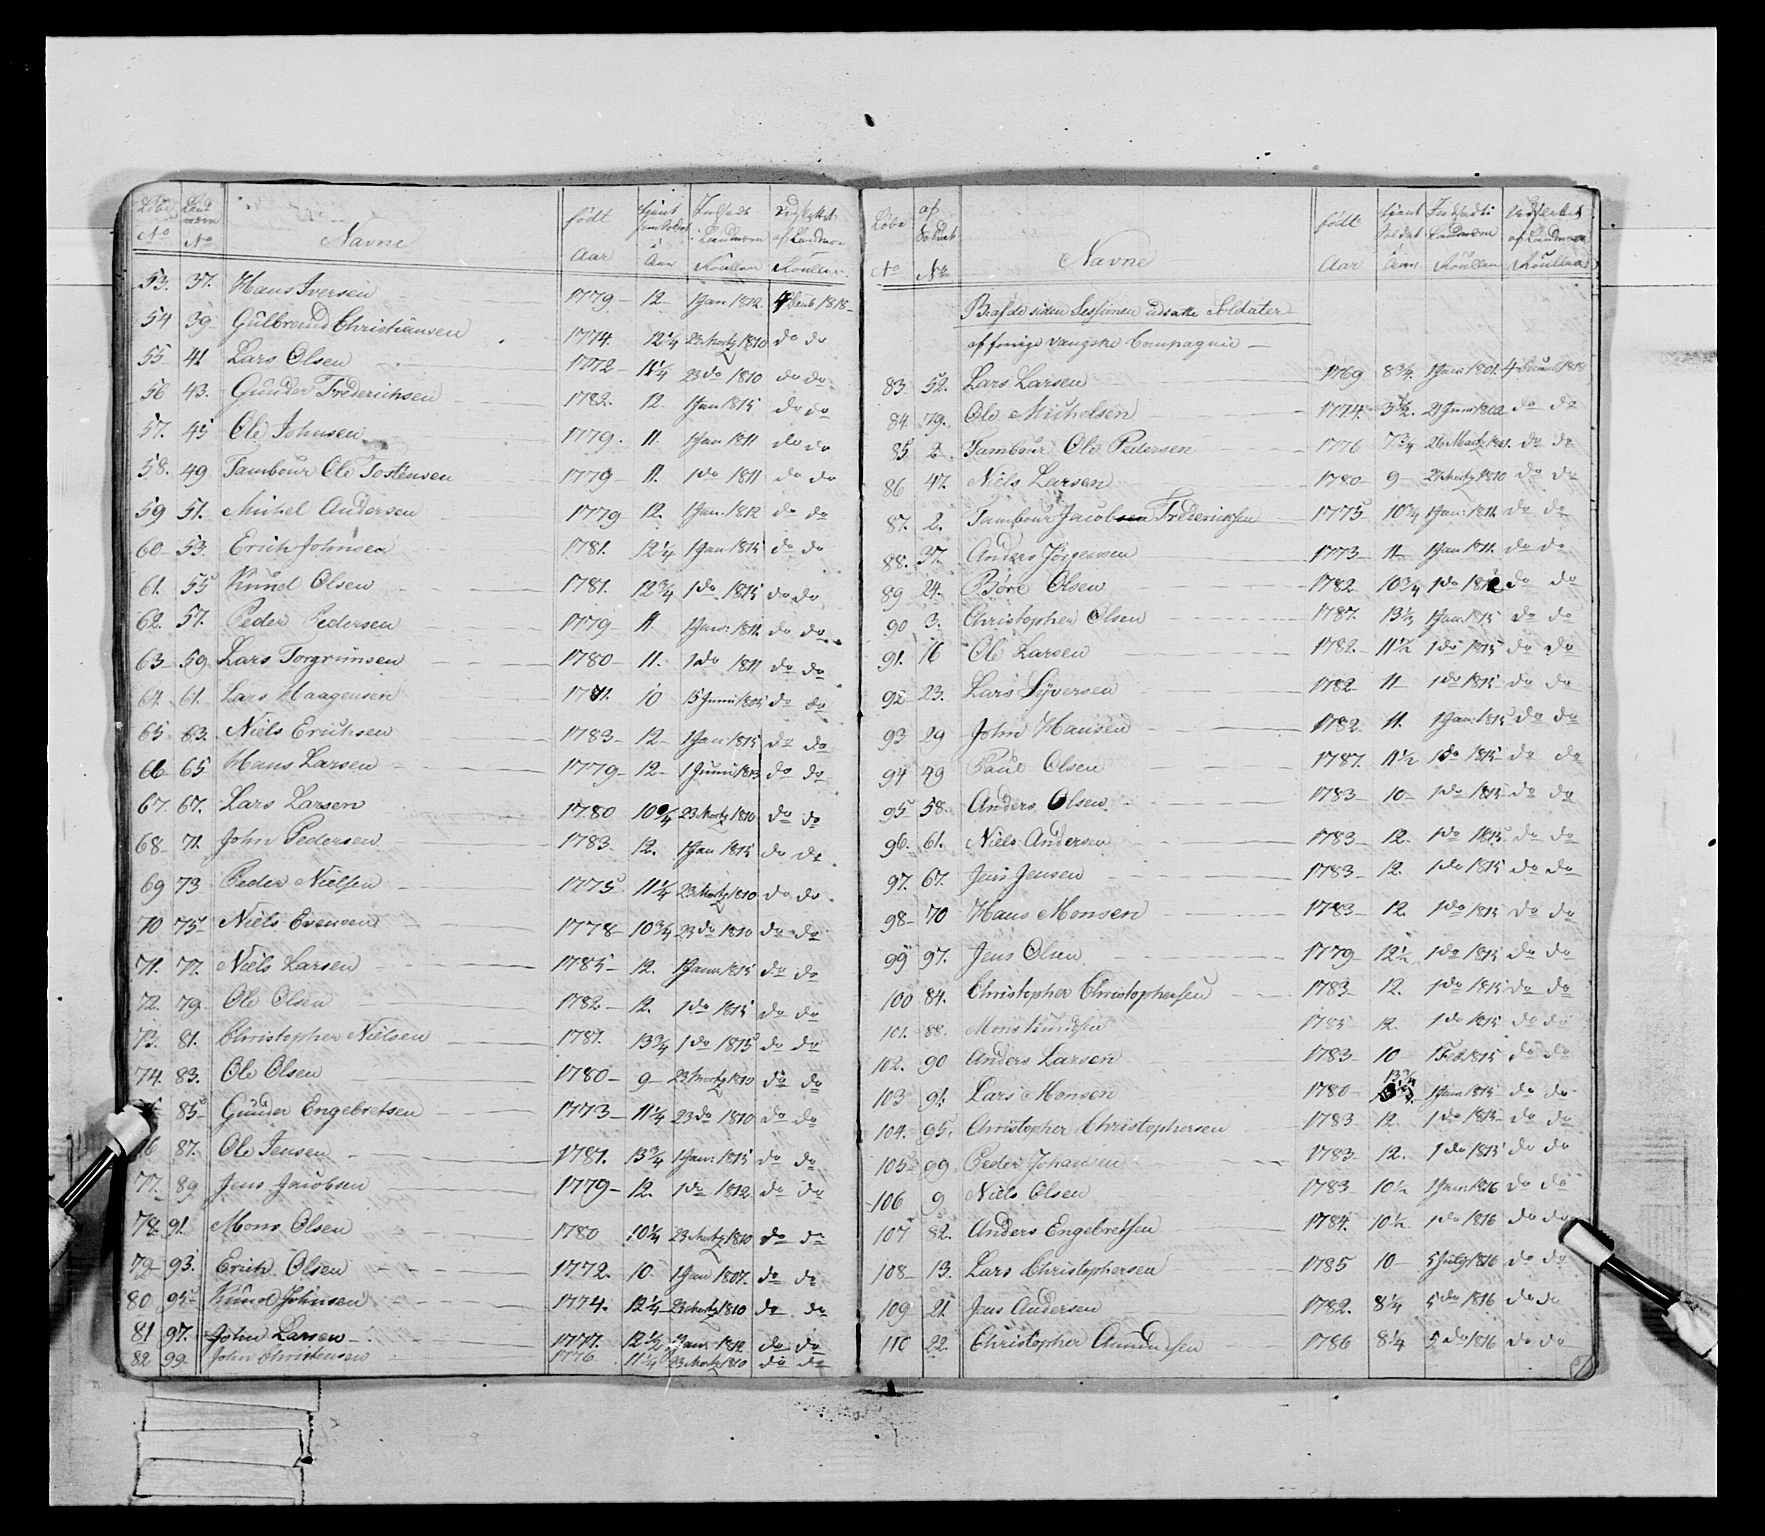 Løbe No | Landværn No | Navne | født Aar | tjent som Soldat i Aar | Indsadt i Landværn Roullen | Udslettet af Landværn Roullen
53. 37. Hans Iversen 1779 – 12 – 1 Jan 1812. 4 Decmb 1818 –
54 39 Gulbrand Christiansen 1774. 12 1/4 23 Martz 1810 do do
55 41 Lars Olsen 1772 – 11 1/4 23 do 1810 do do
56 43. Gunder Frederichsen 1782. 12 1 Jan 1815 do do
57. 45 Ole Johnsen 1779. 11. 1 Jan 1811 do do
58. 49 Tambour Ole Tostensen 1779 – 11. 1 do 1811 do do
59 51. Michel Andersen 1779 12. 1 Jan. 1812 do do
60 – 53. Erich Johnsen 1781. 12 1/4 1 Jan 1815 do do
61. 55 Knud Olsen 1781. 12 3/4 1 do 1815 do do
62. 57. Peder Pedersen 1779 – 11 1 Janr: 1811. do do
63 59. Lars Torgrimsen 1780 – 11. 1 do 1811 do do
64. 61. Lars Haagensen 1771. 10 15 Junii 1805 do do
65 63. Niels Erichsen 1783 – 12 – 1 Jan 1815 do do
66 65 Hans Larsen 1779 – 12 – 1 Junii 1813 do do
67. 67. Lars Larsen 1780 10 3/4 23 Martz 1810 do do
68 – 71. John Pedersen 1783 12. 1 Jan 1815 do do
69 73 Peder Nielsen 1775 11 1/4 23 Martz 1810 do do
70 75 Niels Evensen 1778 10 3/4 23 do 1810 do do
71. 77. Niels Larsen 1785 – 12. 1 Janr 1815 do do
72. 79. Ole Olsen 1782 – 12. 1 do 1815 do do
73. 81. Christopher Nielsen 1781. 13 3/4 1 do 1815 do do
74. 83. Ole Olsen 1780 – 9 – 23 Martz 1810 do do
85 Gunder Engebretsen 1773 – 11 1/4 23 do 1810 do do
76 87. Ole Jensen 1781. 13 3/4 1 Jan: 1815 do do
77. 89 Jens Jacobsen 1779 – 12. 1 do 1812. do do
78. 91. Mons Olsen 1780 10 1/4 23 Martz 1810 do do
79 – 93. Erich Olsen 1772. 10 1 Jan 1807. do do
80 95 Knud Johnsen 1774. 12 1/4 – 23 Martz 1810 do do
81 97. John Larsen 1777. 12 1/2 1 Janr: 1812 do do
82 99 John Christensen 1776 11 1/4 23 Martz 1810 do do
Løbe No | af Soldat No | Navne | født Aar | tjent Soldat i Aar | Indsadt i Landværn Roullen | Udslettet af Landværn Roullen
siden Sessionen udsatte Soldater
af vangske Compagnie –
83 52. Lars Larsen 1769 8 3/4. 1 Janr 1801. 4 Decmb 1818
84 79. Ole Michelsen 1774. 3 1/2. 21 Junii 1802 do do
85 2 Tambour Ole Pedersen 1776 7 3/4 26 Martz 1801. do do
86 47. Niels Larsen 1780 9 – 24 Martz 1810 do do
87. 2. Tambour Jacob Frederichsen 1775 10 3/4 1 Jan: 1811. do do
88. 37. Anders Jørgensen 1773 – 11 – 1 Jan 1811. do do
89 24. Børe Olsen 1782 10 3/4 1 do 1812 do do
90 3. Christopher Olsen 1781. 13 1/2 1 Jan. 1815 do do
91. 16 Ole Larsen 1782 – 11 1/2 1 do 1815 do do
92 23. Lars Syversen 1782 11 – 1 do 1815 – do do
93 29 John Hansen 1782 11. 1 Jan: 1815 do do
94 49 Paul Olsen 1787. 11 1/2 1 do 1815 – do do
95 58. Anders Olsen 1783 – 10 – 1 do 1815 do do
96. 61. Niels Andersen 1783 – 12. 1 do 1815 do do
97. 67. Jens Jensen 1783 – 12. 1 do 1815 do do
98 – 70 Hans Monsen 1783 – 12. 1 do 1815 do do
99 97. Jens Olsen 1779 12 1/2 1 do 1815 do do
100 84. Christopher Christophersen 1783 12. 1 do 1815 do do
101. 88. Mons Knudsen 1785 12. 1 do 1815 do do
102. 90 Anders Larsen 1783 10 1 Feb. 1815 do do
103 91. Lars Monsen 1780 – 13 3/4 1 Janr 1815 – do do
104. 95. Christopher Christophersen 1783 12. 1 do 1815 – do do
105 99 Peder Johansen 1783 12. 1 do 1815 do do
106 9 Niels Olsen 1783 10 1/2 1 Jan: 1816 do do
107 82. Anders Engebretsen 1784. 10 1/2. 1 do 1816 do do
108 – 13. Lars Christophersen 1785 10 – 5 July 1816 do do
109 21. Jens Andersen 1782. 8 1/4 5 do 1816 do do
110 22. Christopher Amundsen 1786 8 1/4 5 do 1816 do do